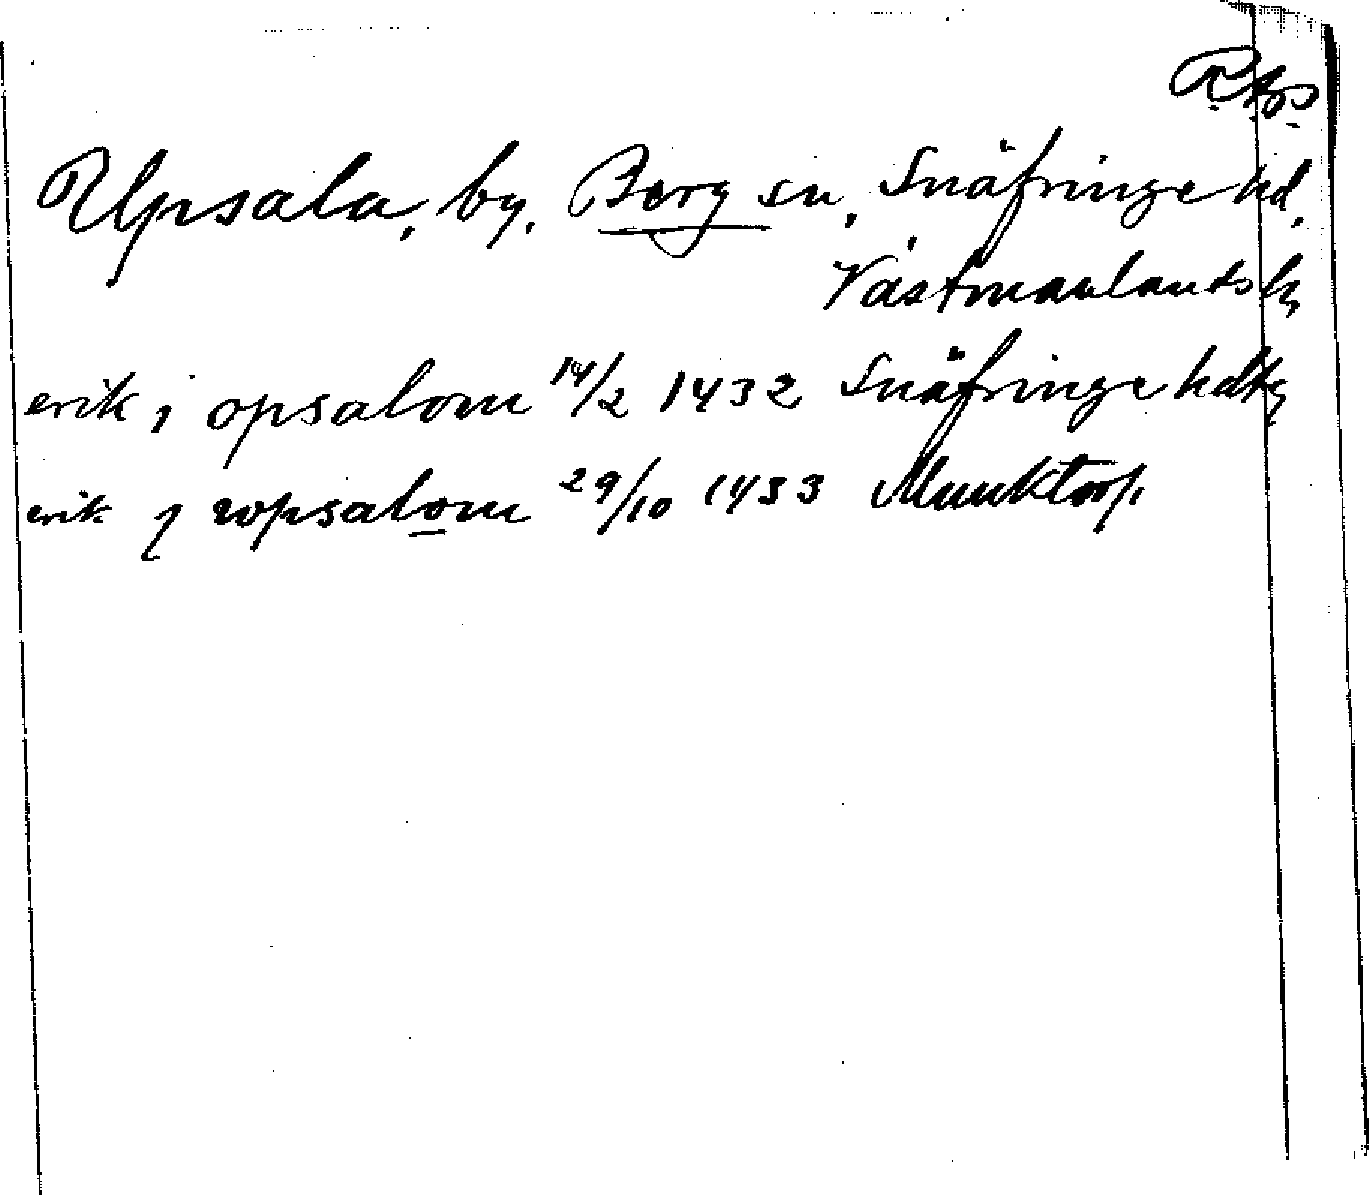 R.A.P.
Upsala, by, Berg sn, Snäfringe hd,
Västmanlands l.
erik i opsalom 14/2 1432 Snäfringe hd
erik j wpsalom 29/10 1433 Munktorp